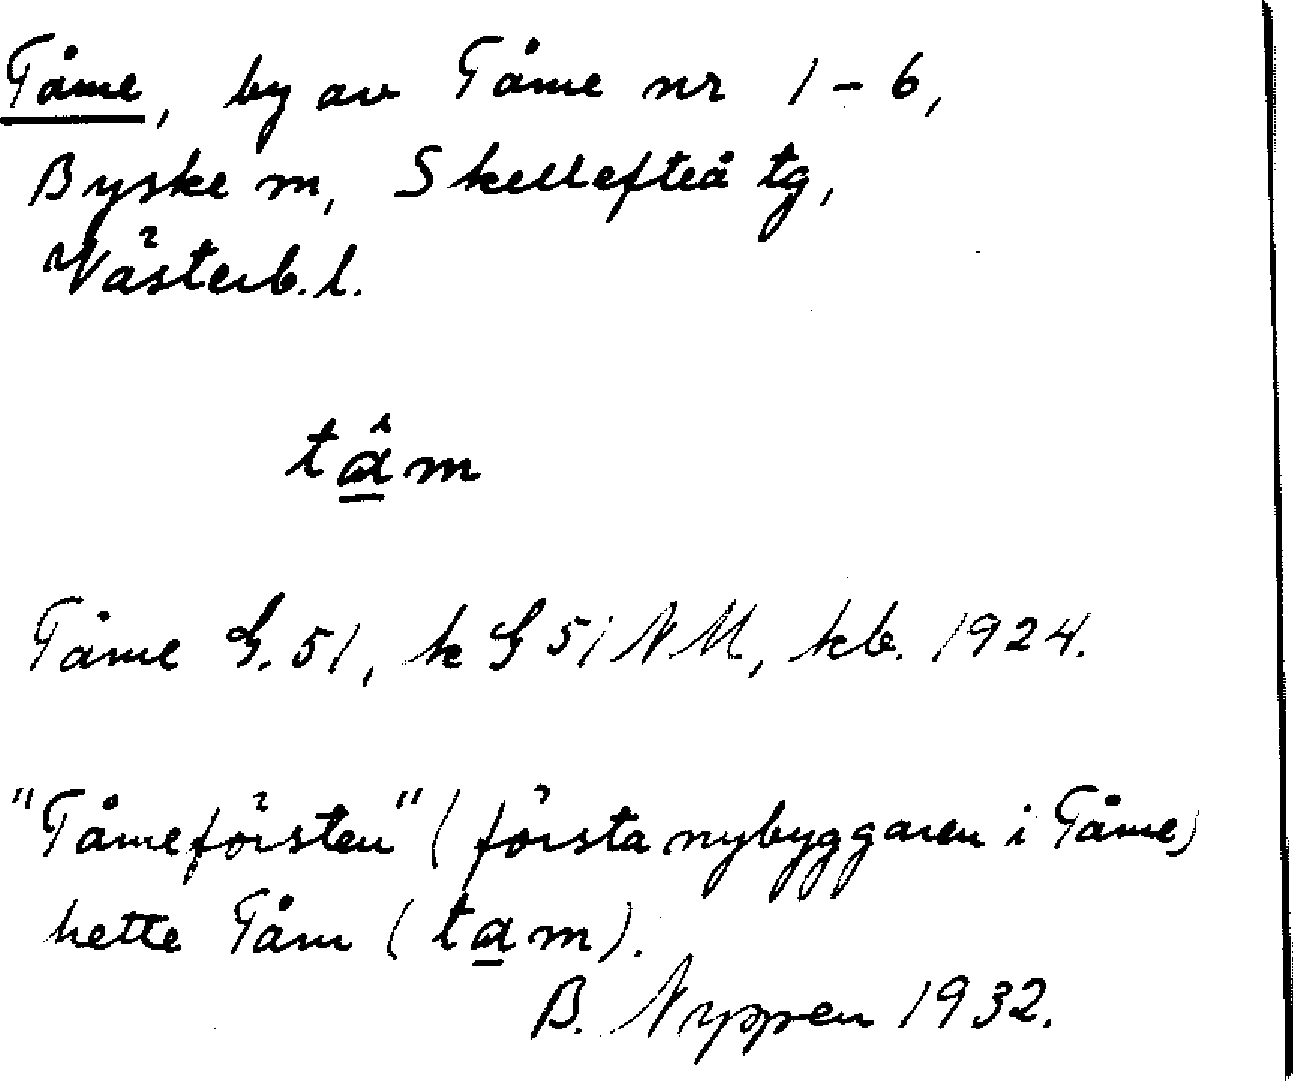 Tåme, by av Tåme nr 1-6,
Byske sn, Skellefteå tg,
Västerb. l.
tâm
Tåme G. 51, k G 51 NM, kb. 1924.
"Tåmeförsten" (första nybyggaren i Tåme)
hette Tåm (tam).
B. Nyppen 1932.